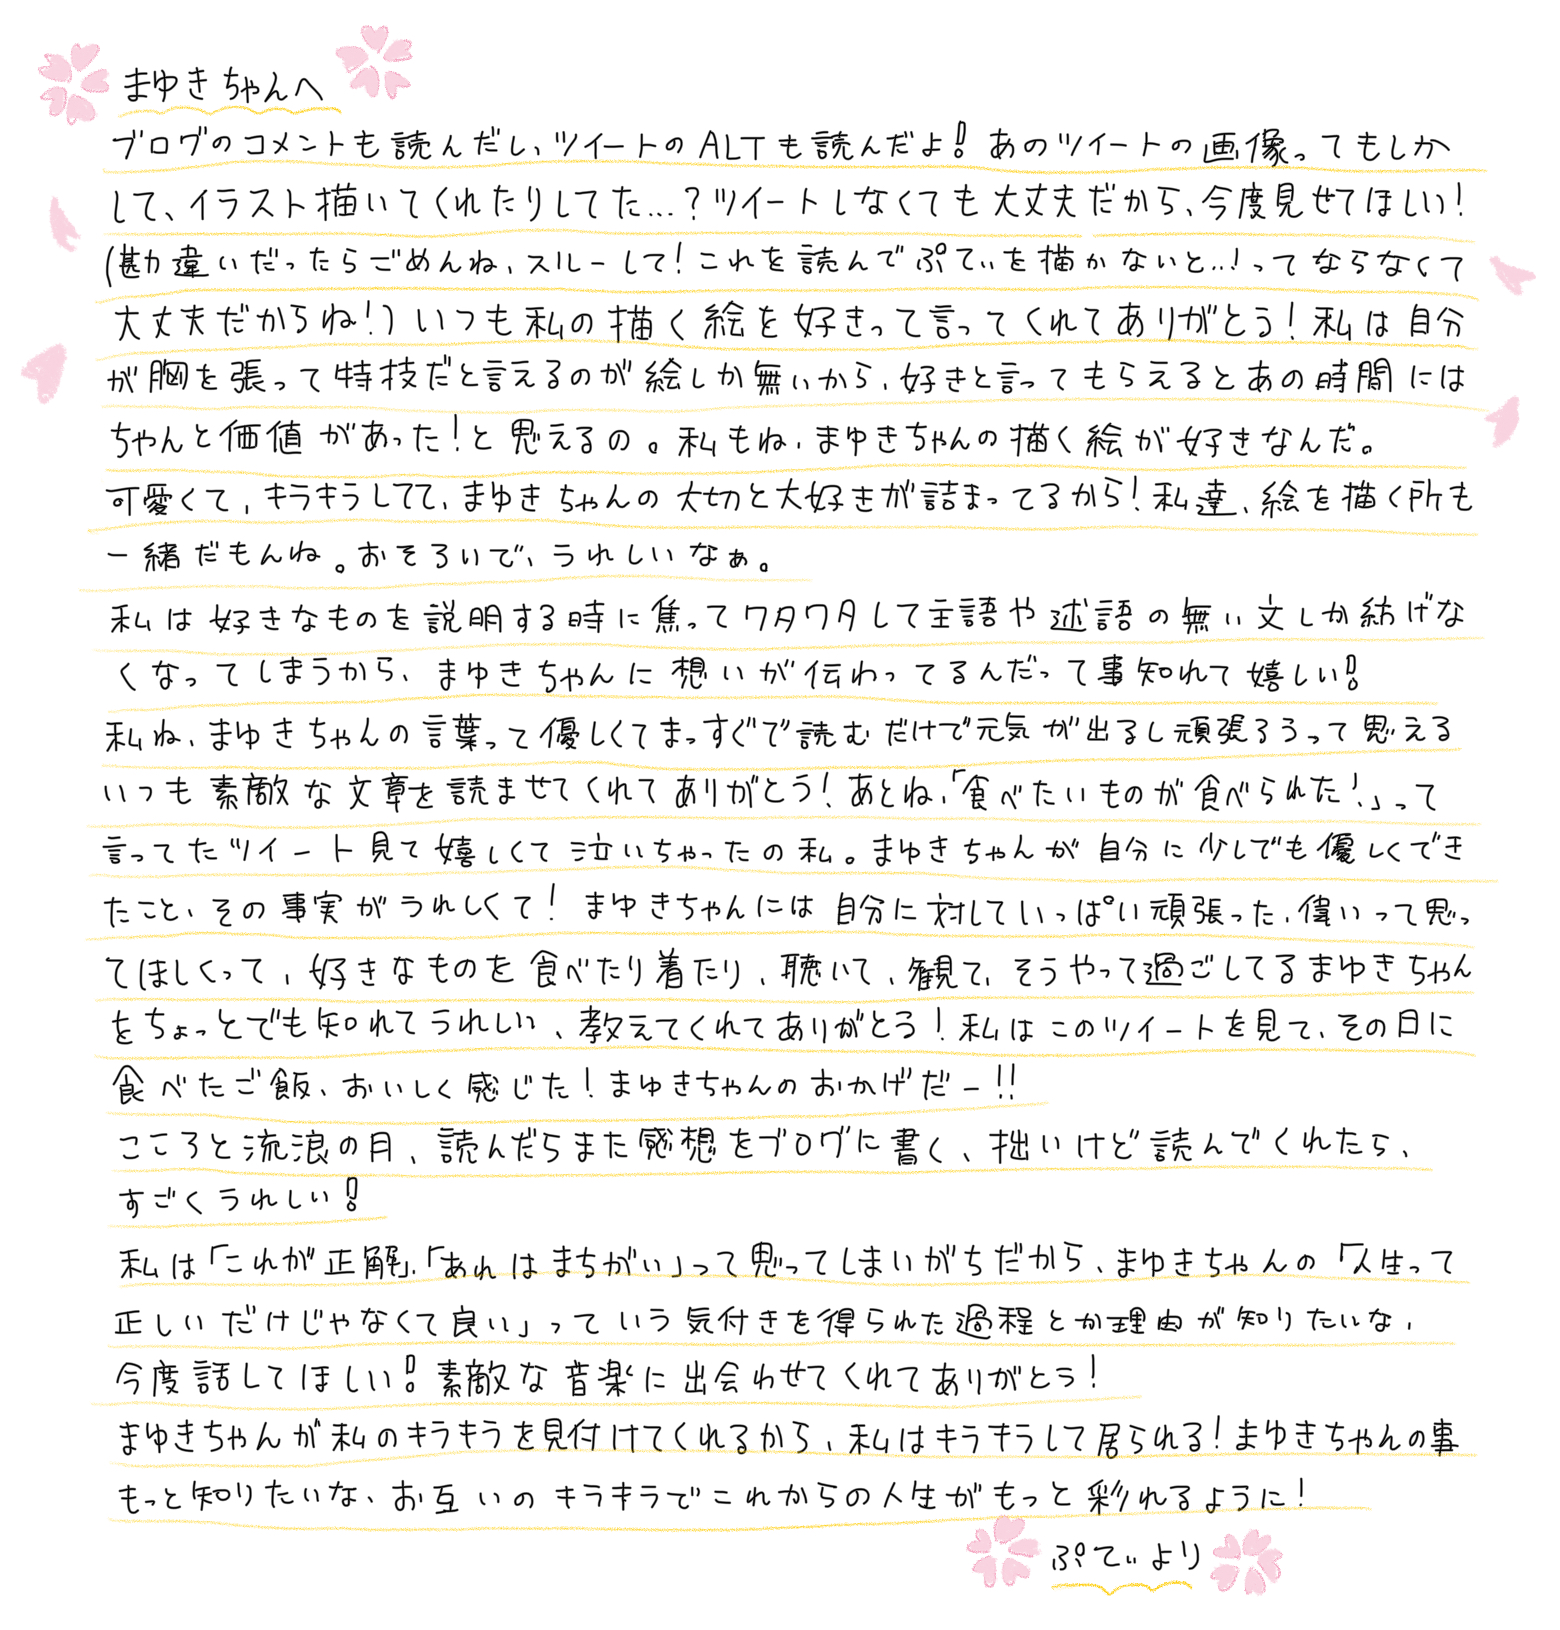 まゆきちゃんへ
ブログのコメントも読んだし、ツイートのALTも読んだよ!あのツイートの画像ってもしか
して、イラスト描いてくれたりしてた…?ツイートしなくても大丈夫だから、今度見せてほしい!
(勘違いだったらごめんね、スルーして!これを読んでぷてぃを描かないと…!ってならなくて
大丈夫だからね!)いつも私の描く絵を好きって言ってくれてありがとう!私は自分
が胸を張って特技だと言えるのが絵しか無いから、好きと言ってもらえるとあの時間には
ちゃんと価値があった!と思えるの。私もね、まゆきちゃんの描く絵が好きなんだ。
可愛くて、キラキラしてて、まゆきちゃんの大切と大好きが詰まってるから!私達、絵を描く所も
一緒だもんね。おそろいで、うれしいなぁ。
私は好きなものを説明する時に焦ってワタワタして主語や述語の無い文しか紡げな
くなってしまうから、まゆきちゃんに想いが伝わってるんだって事知れて嬉しい!
私ね、まゆきちゃんの言葉って優しくてまっすぐで読むだけで元気が出るし頑張ろうって思える
いつも素敵な文章を読ませてくれてありがとう!あとね、「食べたいものが食べられた!」って
言ってたツイート見て嬉しくて泣いちゃったの私。まゆきちゃんが自分に少しでも優しくでき
たこと、その事実がうれしくて!まゆきちゃんには自分に対していっぱい頑張った、偉いって思っ
てほしくって、好きなものを食べたり着たり、聴いて、観て、そうやって過ごしてるまゆきちゃん
をちょっとでも知れてうれしい、教えてくれてありがとう!私はこのツイートを見て、その日に
食べたご飯、おいしく感じた!まゆきちゃんのおかげだー!!
こころと流浪の月、読んだらまた感想をブログに書く、拙いけど読んでくれたら、
すごくうれしい!
私は「これが正解」、「あれはまちがい」って思ってしまいがちだから、まゆきちゃんの「人生って
正しいだけじゃなくて良い」っていう気付きを得られた過程とか理由が知りたいな、
今度話してほしい!素敵な音楽に出会わせてくれてありがとう!
まゆきちゃんが私のキラキラを見付けてくれるから、私はキラキラして居られる!まゆきちゃんの事
もっと知りたいな、お互いのキラキラでこれからの人生がもっと彩れるように!
ぷてぃより